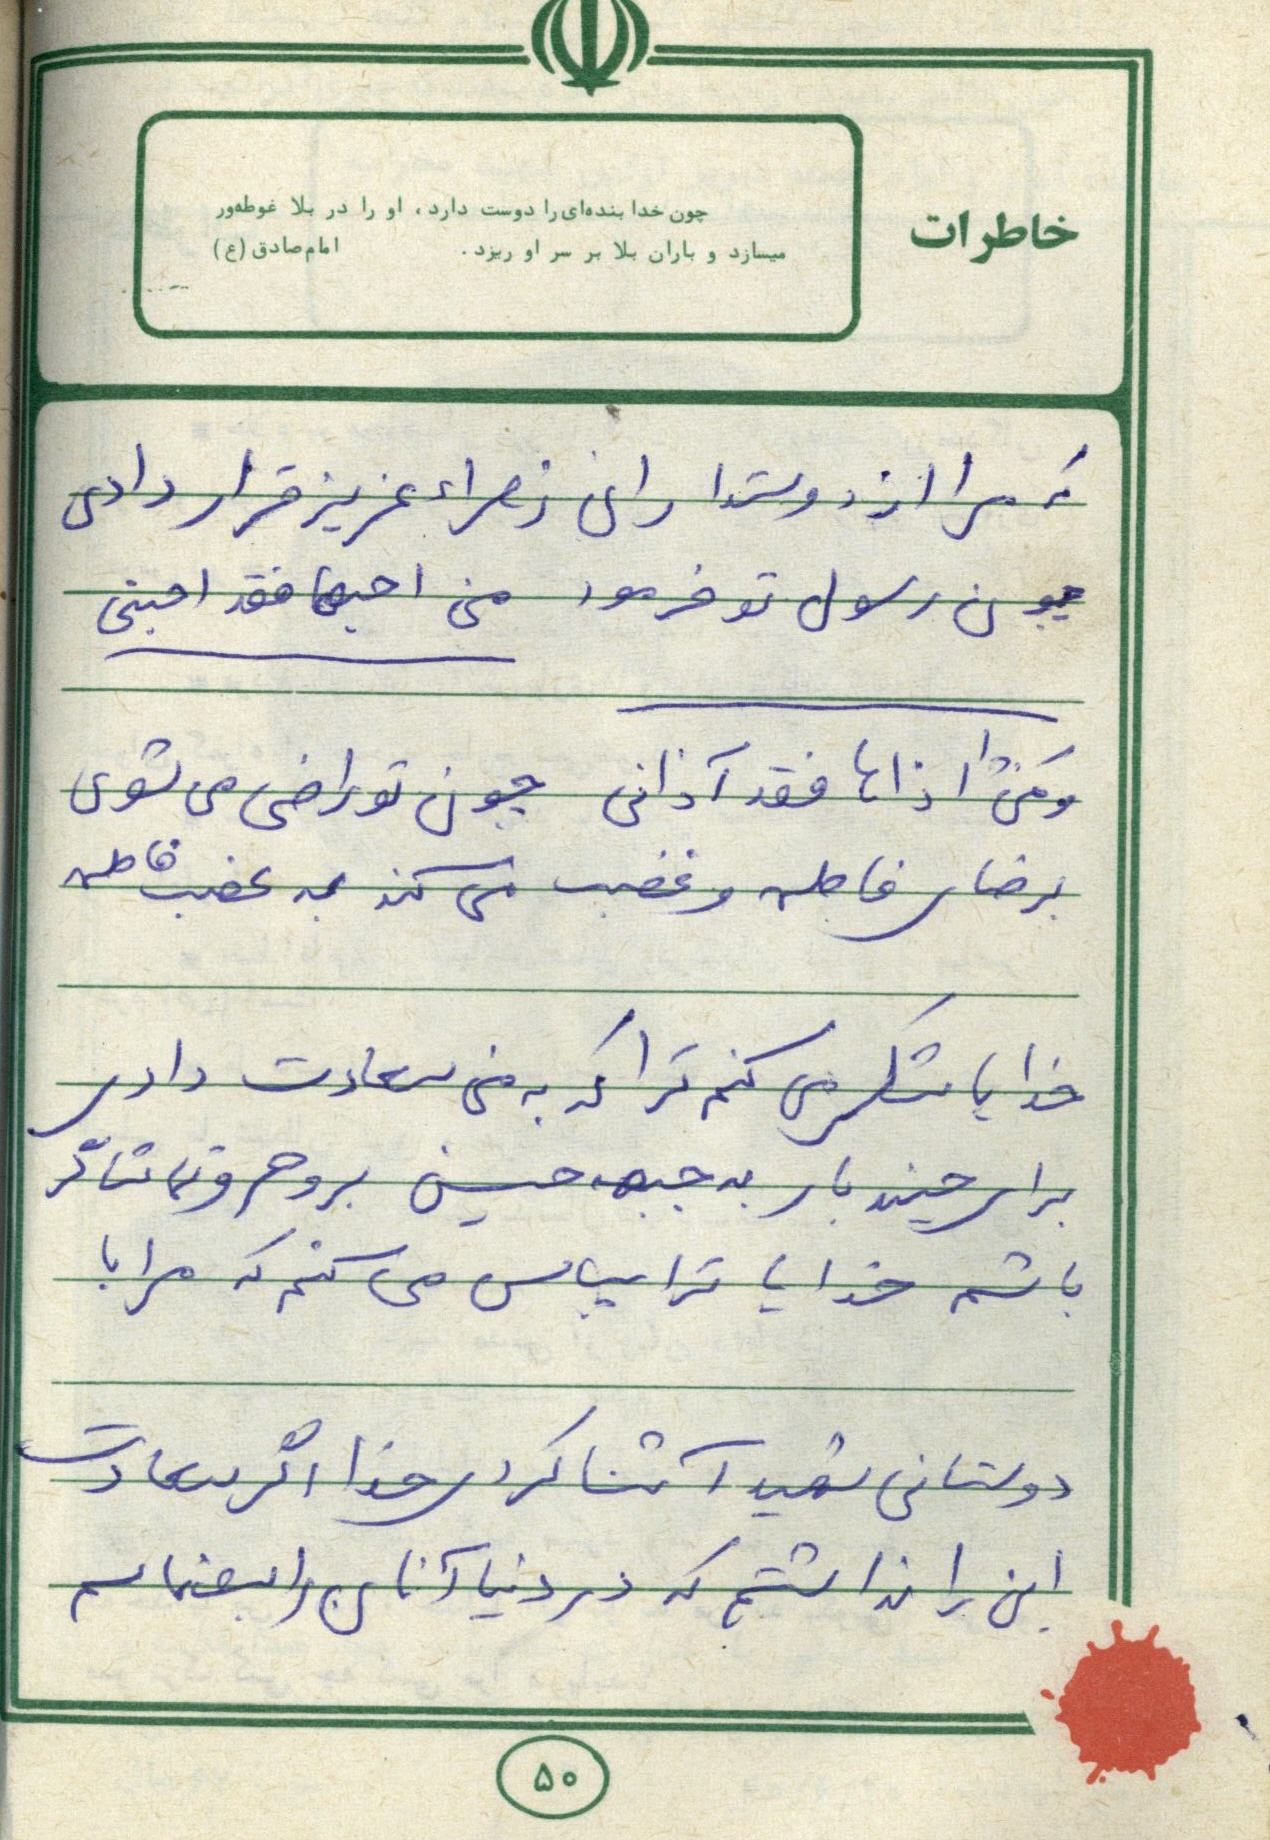 خاطرات
چون خدا بنده‌ای را دوست دارد، او را در بلا غوطه‌ور
میسازد و باران بلا بر سر او ریزد.
امام صادق (ع)
که مرا از دوستداران زهراء عزیز قرار دادی
چون رسول تو فرمود من احبها فقد احبنی
و من اذاها فقد آذانی چون تو راضی می شوی
برضای فاطمه و غضب می کند به غضب فاطمه
خدایا شکر می کنم ترا که به من سعادت دادی
برای چند بار به جبهه حسین بروم و تماشاگر
باشم خدایا ترا سپاس می کنم که مرا با
دوستانی شهید آشنا کردی خدا اگر سعادت
این را نداشتم که در دنیا آنان را بشناسم
۵۰